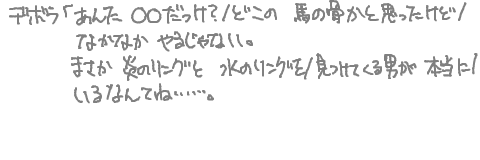 デボラ「あんた ○○だっけ?/どこの 馬の骨かと思ったけど/
なかなか やるじゃない。
まさか 炎のリングと 水のリングを/見つけてくる男が 本当に/
いるなんてね……。